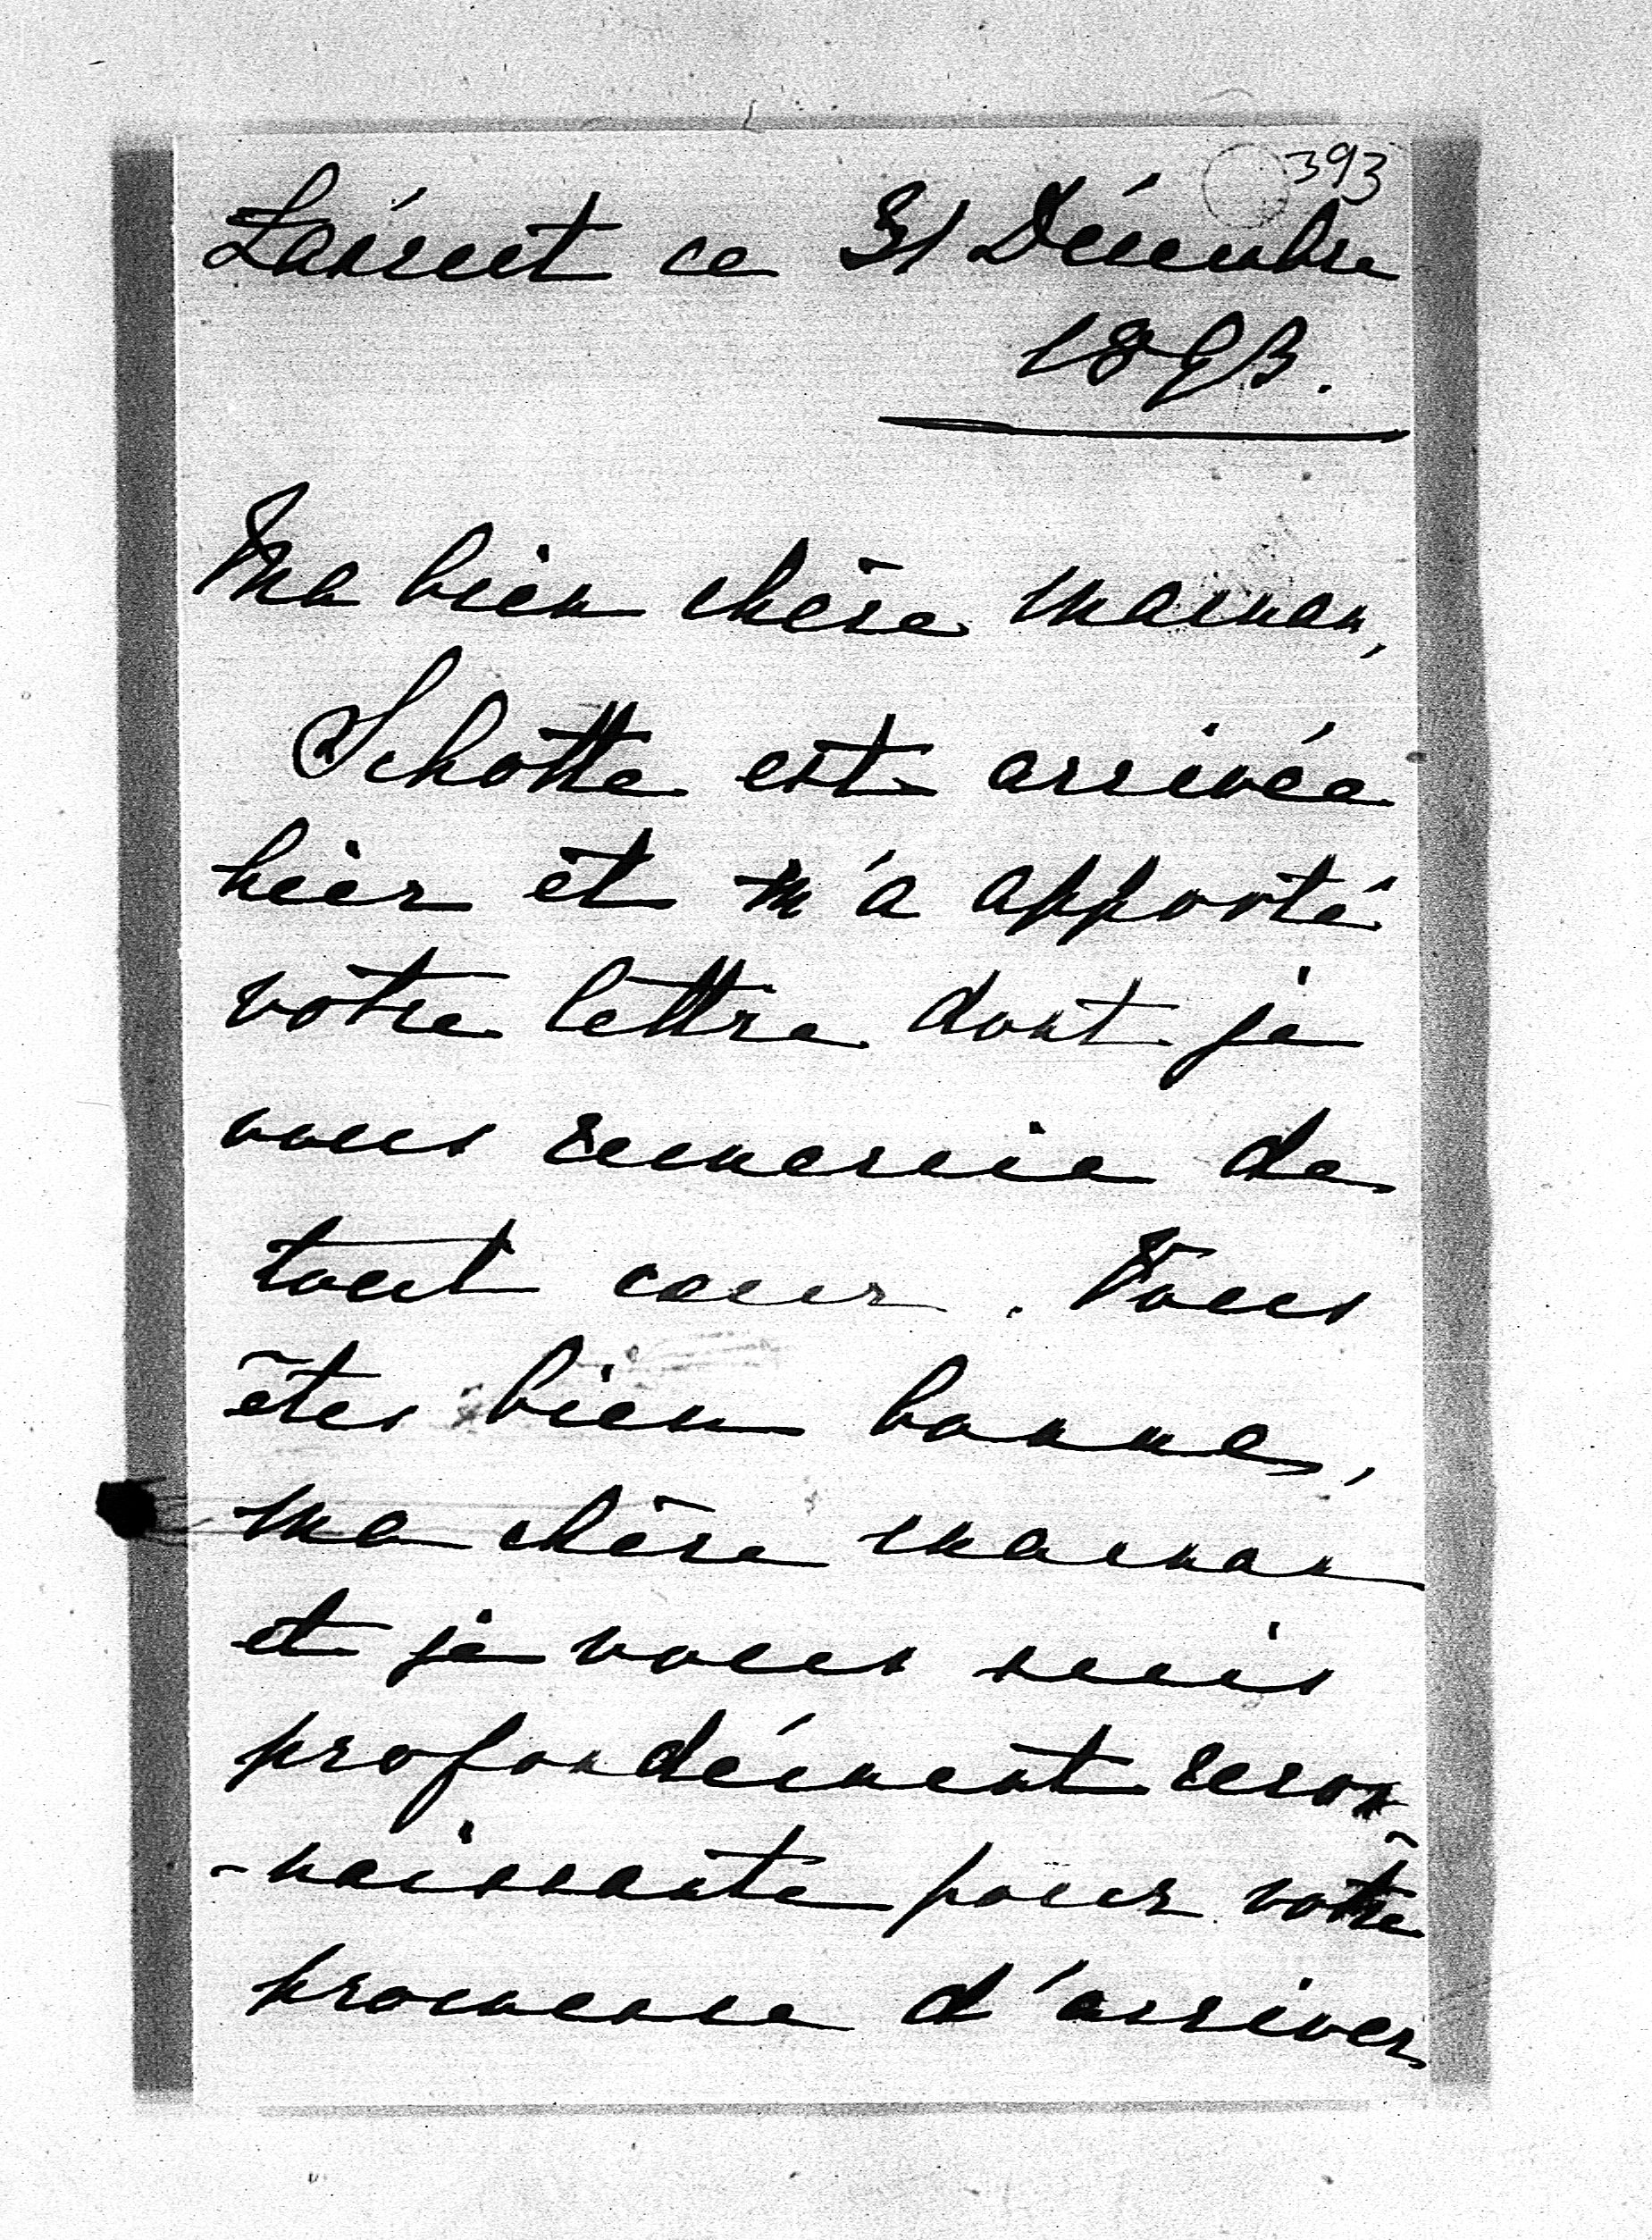 393
ce 31 Décembre
1893.
Ma bien chère maman,
Schotte est arrivée
hier et m'a apporté
votre lettre dont je
vous remercie de
tout coeur. Vous
êtes bien bonne,
ma chère maman
et je vous suis
profondément recon-
-naissante pour votre
promesse d'arriver